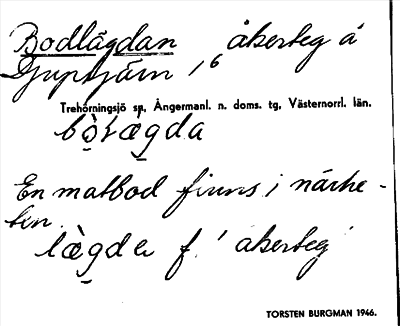 Bodlägdan åkerteg å
Djuptjärn 1⁶
Trehörningsjö sn, Ångermanl. n. doms. tg, Västernorrl. län.
En matbod finns i närhe-
ten.
lägda f. 'åkerteg'
TORSTEN BURGMAN 1946.